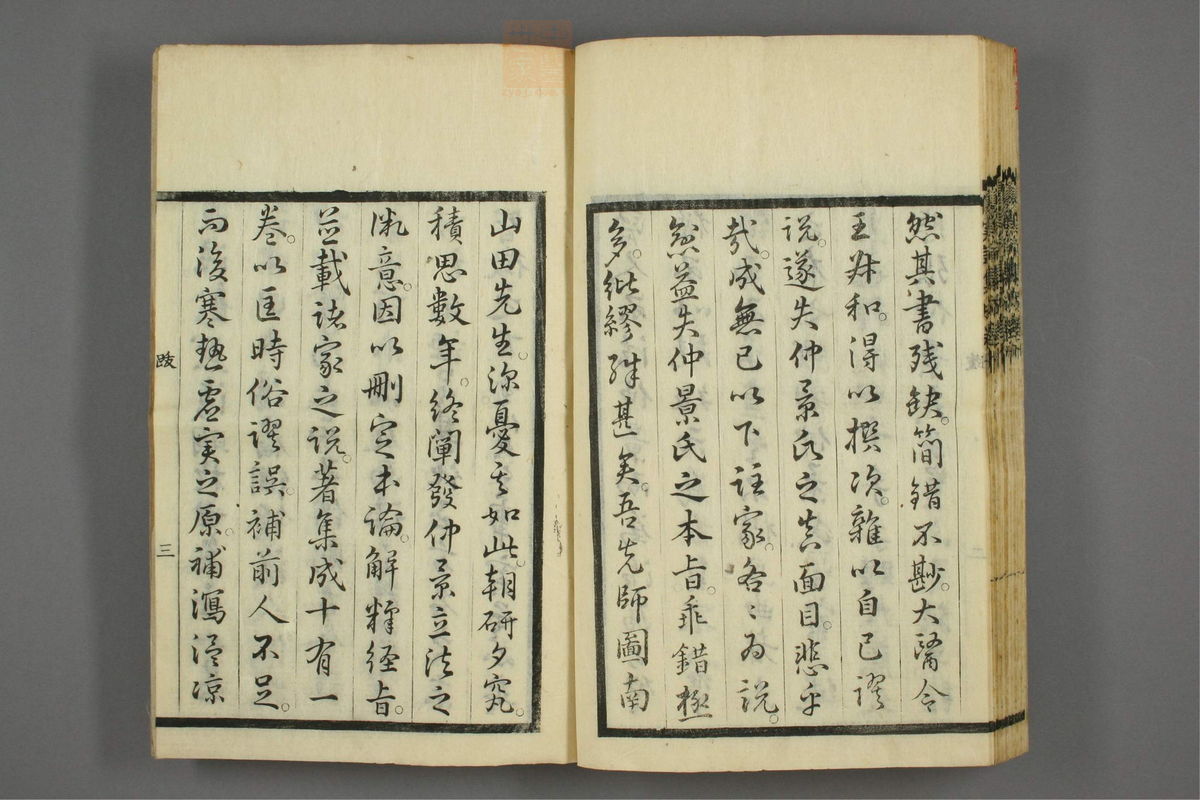 然其書残缺。簡錯不尠。大醫令
王叔和。得以撰次。雜以自己謬
説。遂失仲景氏之真面目。悲乎
哉。成無己以下註家。各〻為説。
愈益失仲景氏之本旨。乖錯極
多。紕繆殊甚矣。吾先師圖南
山田先生。深憂其如此。朝研夕究。
積思數年。終闡發仲景立法之
微意。因以刪定本論。解釋経旨。
並載諸家之説。著集成十有一
巻。以匡時俗謬誤。補前人不足。
而後寒熱虚実之原。補瀉温凉
跋
三